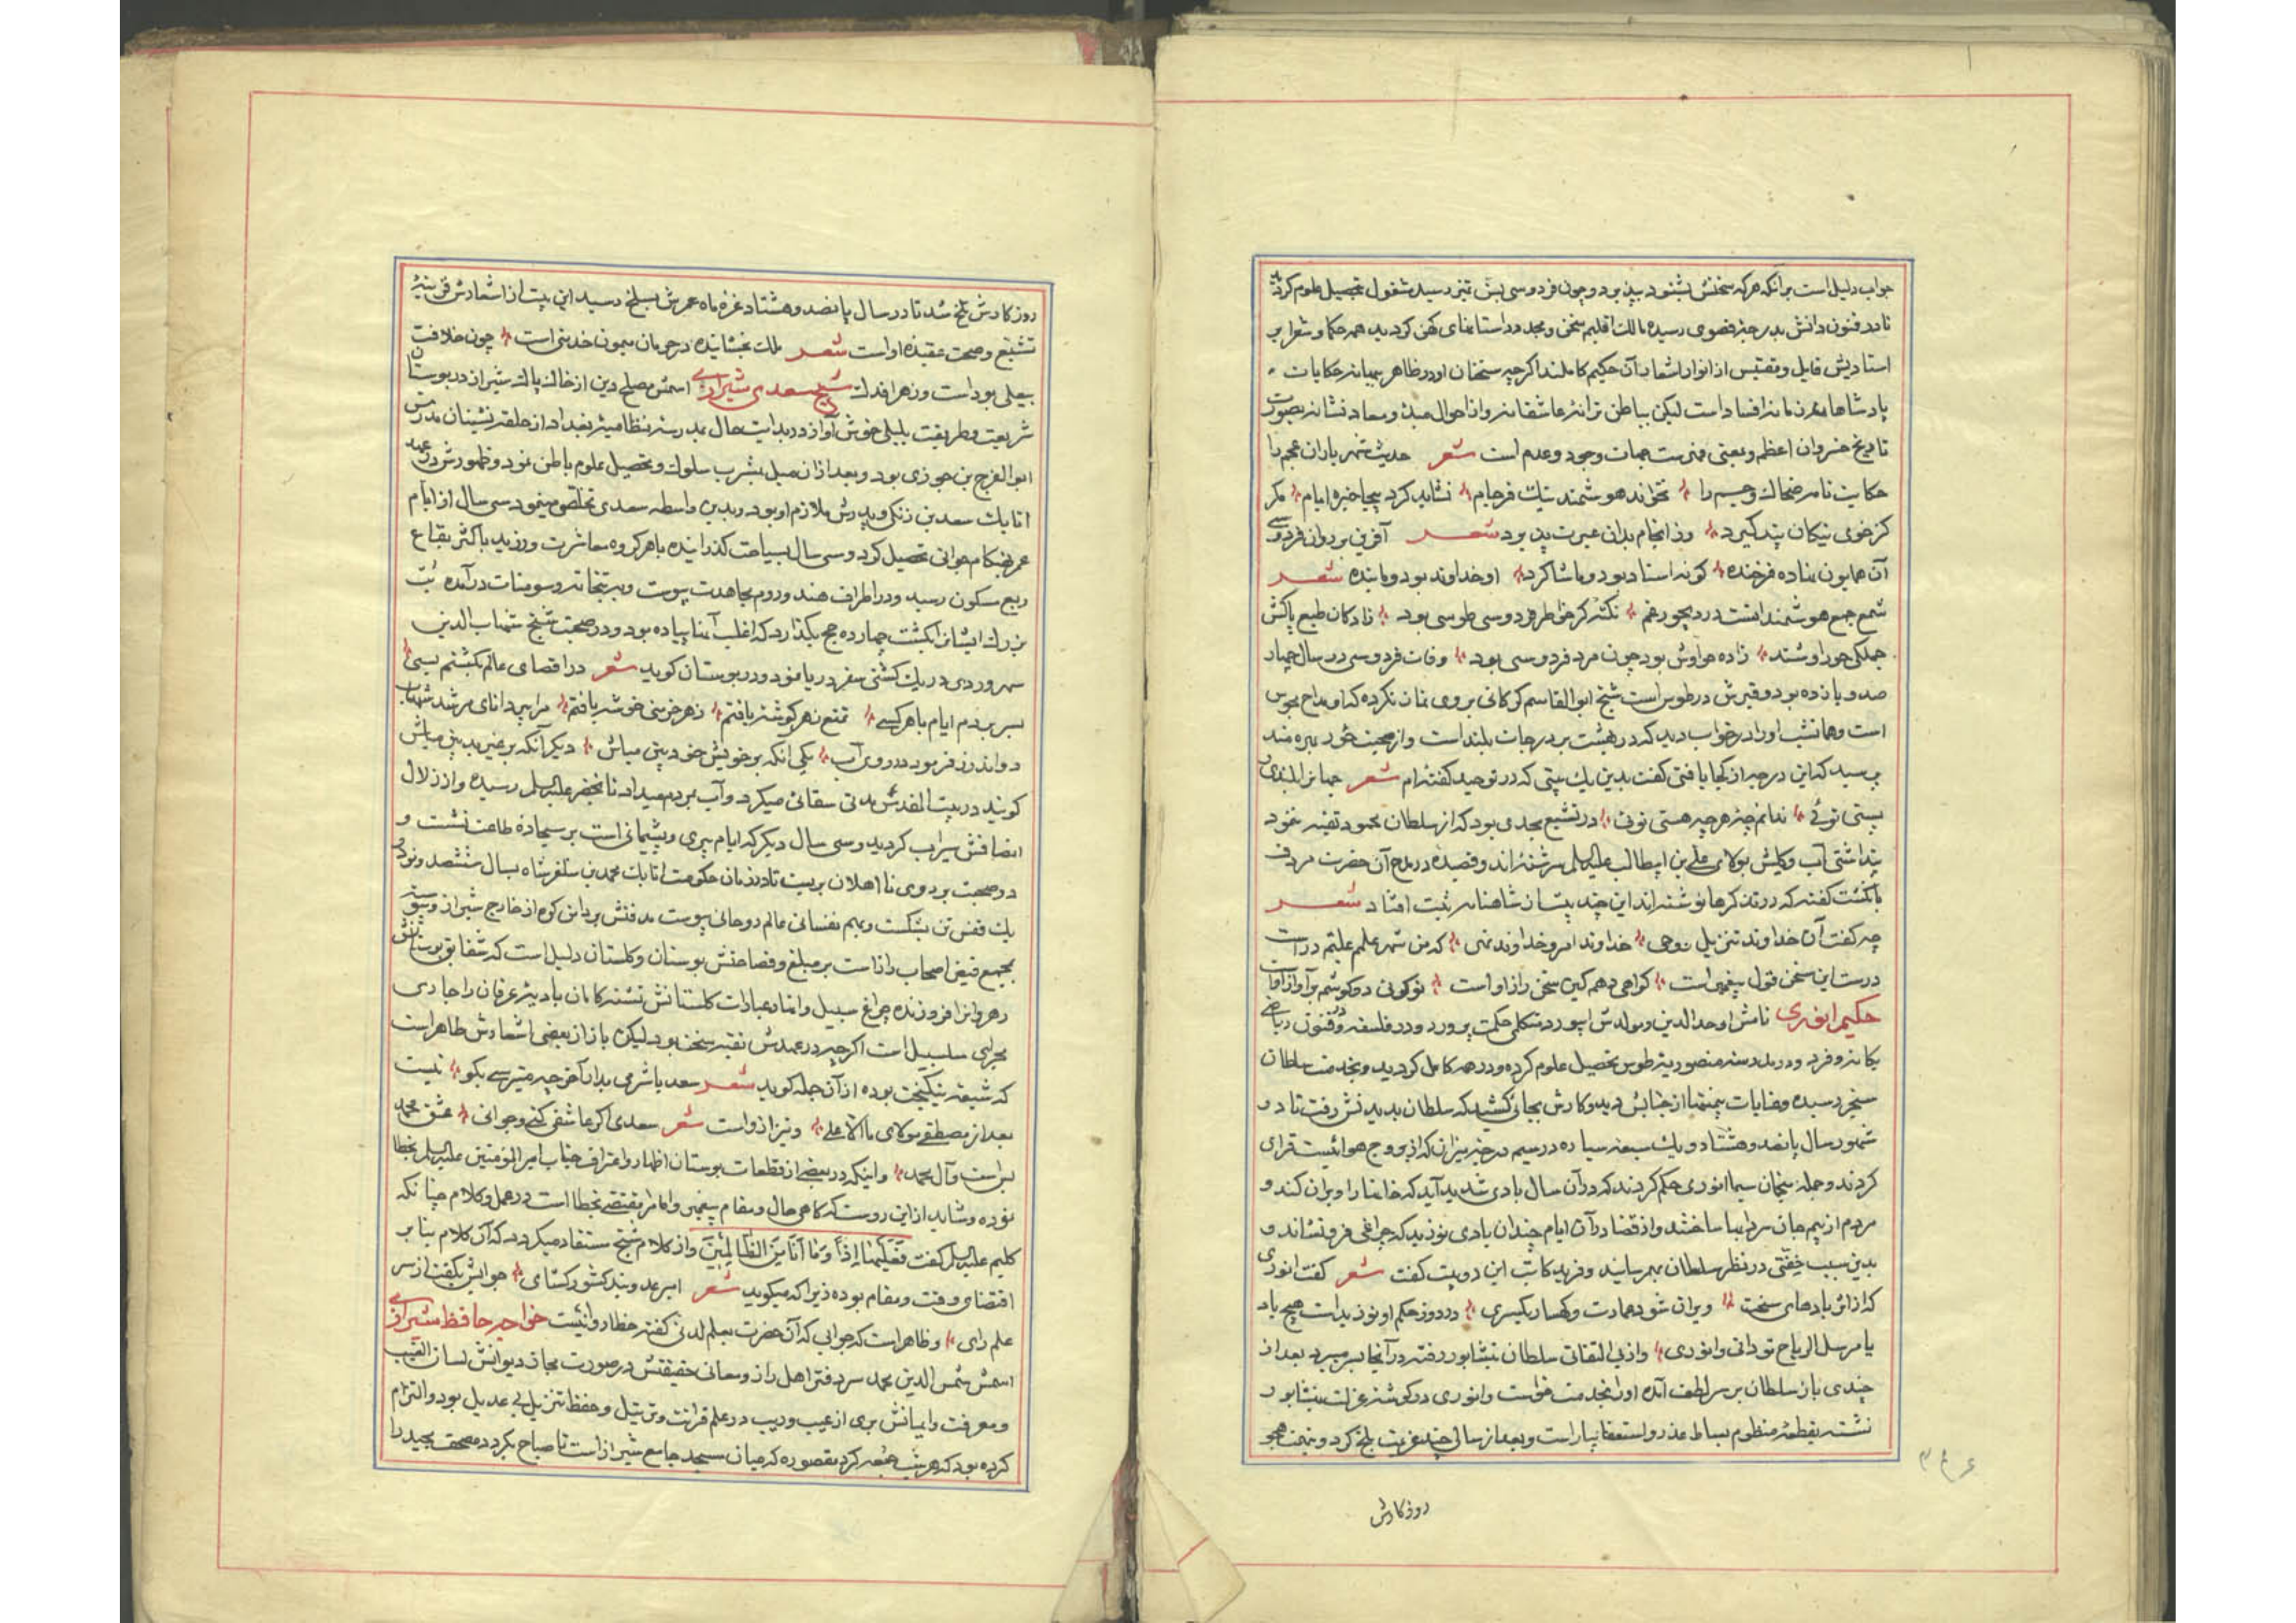 جواب دلیل است بر آنکه هرکه سخنش بشنود بدین بود و چون فردوسی بسن تمیز رسید مشغول تحصیل علوم کردید
تا در فنون دانش بدرجهٔ قصوی رسیده مالک اقلیم سخن و مجدد داستانهای کهن کردید همه حکما و شعرا بر
استادیش قایل و مقتبس از انوار اشعار آن حکیم کاملند اکرچه سخنان او در ظاهر بمیانه حکایات
پادشاهانه و افسانه است لیکن بباطن ترانهٔ عاشقانه و از احوال مبدء و معاد نشانه بصورت
تاریخ خسروان اعظم و بمعنی فهرست جهات وجود و عدم است شعر حدیث شهریاران عجم را
حکایت نامه ضحاک و جم را نخواند هوشمند نیک فرجام نشاید کرد بیجا خیره ایام مکر
کز خوی نیکان پند کیرد وز انجام بدان عبرت پذیرد شعر آفرین بر روان فردوسی
آن همایون نهاد فرخنده کو نه استاد بود و ما شاکرد او خداوند بود و ما بنده شعر
شمع جمع هوشمندانست در دیجور غم نکته کز خاطر فردوسی طوسی بود زادکان طبع پاکش
جملکی حوراوشند زاده حوراوش بود چون مرد فردوسی بود وفات فردوسی در سال چهار
صد و یازده بود و قبرش در طوس است شیخ ابو القاسم کرکانی بر وی نماز نکرده که او مداح مجوس
است و همانشب او را در خواب دید که در بهشت بر درجات بلند است و از صحبت حور بهره مند
پرسید که این درجه از کجا یافتی کفت بدین یک بیتی که در توحید کفته‌ام شعر جهانرا بلندی و
پستی توئی ندانم چهٔ هرچه هستی توئی در تشیع بحدی بود که از سلطان محمود تقیه ننمود
پنداشتی آب و کلش بولای علی بن ابیطالب علیه السلم سرشته‌اند و قصیده در مدح آن حضرت مردف
بانکشت کفته که در تذکرها نوشته‌اند این چند بیت از شاهنامه ثبت افتاد شعر
چه کفت آن خداوند تنزیل و وحی خداوند امر و خداوند نهی که من شهر علمم علیم در است
درست این سخن قول پیغمبر است کواهی دهم کین سخن راز اوست تو کوئی دو کوشم بر آواز اوست
حکیم انوری نامش اوحد الدین و مولدش ابیورد متکلمی حکمت پرورد و در فلسفه و فنون ریاضی
یکانه و فرد و در مدرسه منصوریه طوس تحصیل علوم کرده و در همه کامل کردید و بخدمت سلطان
سنجر رسیده و عنایات بیمنتها از جنابش دید و کارش بجائی کشید که سلطان بدیدنش رفت تا در
شهور سال پانصد و هشتاد و یک سبعه سیاره در سیم درجه میزان که از بروج هوائیست قران
کردند و جمله منجمان سیما انوری حکم کردند که در آن سال بادی شدید آید که خانها را ویران کند و
مردم از بیم جان سردابها ساختند و از قضا در آن ایام چندان بادی نوزید که چراغی فرو نشاند و
بدین سبب خفتی در نظر سلطان بهم رسانید و فرید کاتب این دو بیت کفت شعر کفت انوری
که از اثر بادهای سخت ویران شود عمارت و کهسار یکسری در روز حکم او نوزیدست هیچ باد
یا مرسل الریاح تو دانی و انوری و از بی التفاتی سلطان بنیشابور رفته در آنجا بسر میبرد بعد از
چندی باز سلطان بر سر لطف آمده او را بخدمت خواست و انوری در کوشهٔ عزلت نیشابور
نشسته بقطعهٔ منظوم بساط عذر و استعفا بیاراست و بعد از سالی چند عزیمت بلخ کرد و بتهمت هجو
روزکارش
روزکارش تلخ شد تا در سال پانصد و هشتاد غرهٔ ماه عمرش بسلخ رسید این بیت از اشعارش قرینهٔ
تشیع و صحت عقیده او است شعر ملک بخشاینده در حرمان میمون خدمتی است چون خلافت
بیعلی بود است و زهرا فدک شیخ سعدی شیرازی اسمش مصلح دین از خاک پاک شیراز در بوستان
شریعت و طریقت بلبلی خوش آواز در بدایت حال بمدرسه نظامیهٔ بغداد از حلقه نشینان مدرس
ابو الفرج بن جوزی بود و بعد از آن میل بشرب سلوک و تحصیل علوم باطن نمود و ظهورش در عهد
اتابک سعد بن زنکی و پدرش ملازم او بود و بدین واسطه سعدی تخلص مینمود سی سال از ایام
عمر بهنکام جوانی تحصیل کرد و سی سال بسیاحت کذرانیده با هر کروه معاشرت ورزید باکثر بقاع
ربع مسکون رسید و در اطراف هند و روم بمجاهدت پیوست و به بتخانه سومنات درآمده بت
بزرک ایشانرا بکشت چهارده حج بکذارد که اغلب آنها پیاده بود و در صحبت شیخ شهاب الدین
سهروردی در یک کشتی سفر دریا نمود و در بوستان کوید شعر در اقصای عالم بکشتم بسی
بسر بردم ایام با هر کسی تمتع ز هر کوشهٔ یافتم ز هر خرمنی خوشهٔ یافتم مرا پیر دانای مرشد شهاب
دو اندرز فرمود بر روی آب یکی آنکه بر خویش خود بین مباش دیکر آنکه بر غیر بدبین مباش
کویند در بیت المقدس مدتی سقائی میکرد و آب بمردم میداد تا بخضر علیه السلم رسیده و از زلال
انصافش سیراب کردید و سی سال دیکر که ایام پیری و پشیمانی است بر سجادهٔ طاعت نشست و
در صحبت بر روی نااهلان ببست تا در زمان حکومت اتابک محمد بن سلغر شاه بسال ششصد و نود و
یک قفس تن بشکست و بهم نفسانی عالم روحانی پیوست مدفنش بر دامن کوه از خارج شیراز و پیوسته
مجمع فیض اصحاب راز است بر مبلغ فصاحتش بوستان و کلستان دلیل است که شقایق بوستانش
رهروانرا فروزنده چراغ سبیل و انهار عبارات کلستانش تشنه کامان بادیهٔ عرفان را جاری
مجرای سلسبیل است اکرچه در عهدش تقیه سخت بود لیکن باز از بعضی اشعارش ظاهر است
که شیعه نیکبخت بوده از آن جمله کوید شعر سعدیا شرمی بدار آخر چه میترسی بکو نیست
بعد از مصطفی مولای ما الا علی و نیز از و است شعر سعدی اکر عاشقی کنی و جوانی عشق محمد
بس است و آل محمد و اینکه در بعضی از قطعات بوستان اظهار و اعتراف جناب امیر المؤمنین علیه السلم بخطا
نموده و شاید از این روست که کاهی حال و مقام پیغمبر و امام مقتضی بخطا است در عمل و کلام چنانکه
کلیم علیه السلم کفت فَعَلْتُهَا إِذًا وَمَا أَنَا مِنَ الضَّالِّینَ و از کلام شیخ مستفاد میکردد که آن کلام بنابر
اقتضای وقت و مقام بوده زیرا که میکوید شعر امیر عدو بند کشورکشای جوابش بکفت از سر
علم رای و ظاهر است که جوابی که آن حضرت بعلم لدنی کفته خطا روا نیست خواجه حافظ شیرازی
اسمش شمس الدین محمد سر دفتر اهل راز و معانی حقیقتش در صورت مجاز دیوانش لسان الغیب
و معرفت و ایمانش بری از عیب و ریب در علم قرائت و ترتیل و حفظ تنزیل بی عدیل بود و التزام
کرده بود که هر شب جمعه کرد مقصوره که میان مسجد جامع شیراز است تا صباح بکردد مصحف مجید را